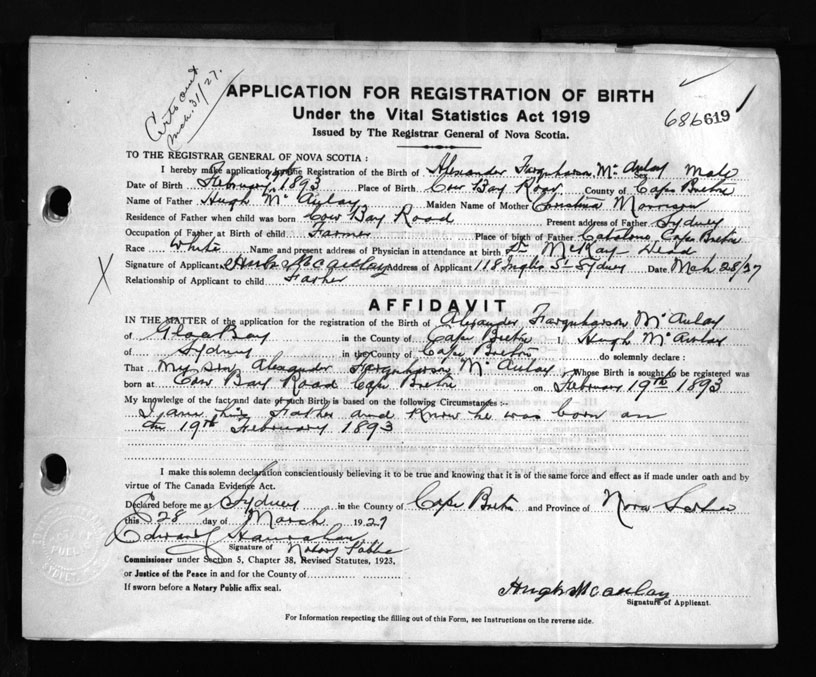 Certs out
Mch. 31/27.
APPLICATION FOR REGISTRATION OF BIRTH
Under the Vital Statistics Act 1919
Issued by The Registrar General of Nova Scotia.
686619
TO THE REGISTRAR GENERAL OF NOVA SCOTIA:
I hereby make application for the Registration of the Birth of Alexander Farquharson McAulay Sex Male
Date of Birth February 19 1893 Place of Birth Cow Bay Road County of Cape Breton
Name of Father Hugh McAulay Maiden Name of Mother Christina Morrison
Residence of Father when child was born Cow Bay Road Present address of Father Sydney
Occupation of Father at Birth of child Farmer Place of birth of Father Catalone Cape Breton
Race White Name and present address of Physician in attendance at birth Dr McKay Dead
Signature of Applicant Hugh McAulay Address of Applicant 118 Inglis St Sydney Date Mch 28/27
Relationship of Applicant to child Father
AFFIDAVIT
IN THE MATTER of the application for the registration of the Birth of Alexander Farquharson McAulay
of Glace Bay in the County of Cape Breton I, Hugh McAulay
of Sydney in the County of Cape Breton do solemnly declare:
That my son Alexander Farquharson McAulay Whose Birth is sought to be registered was
born at Cow Bay Road Cape Breton on February 19th 1893
My knowledge of the fact and date of such Birth is based on the following Circumstances:-
I am his Father and know he was born on
the 19th February 1893
I make this solemn declaration conscientiously believing it to be true and knowing that it is of the same force and effect as if made under oath and by
virtue of The Canada Evidence Act.
Declared before me at Sydney in the County of Cape Breton and Province of Nova Scotia
this 28 day of March 1927
Edward Hanrahan
Signature of Notary Public
Commissioner under Section 5, Chapter 38, Revised Statutes, 1923,
or Justice of the Peace in and for the County of
If sworn before a Notary Public affix seal.
Hugh McAulay
Signature of Applicant.
For Information respecting the filling out of this Form, see Instructions on the reverse side.